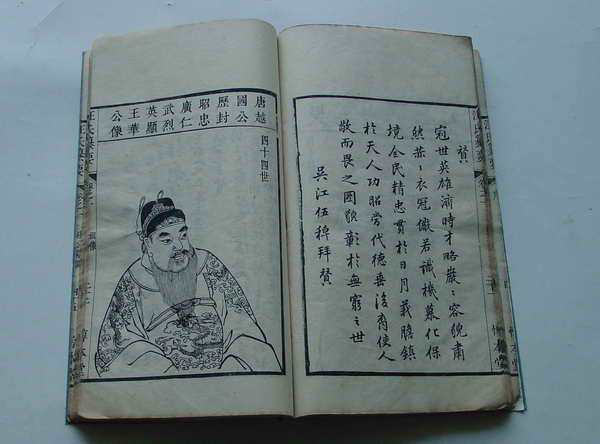 贊
冠世英雄濟時才略嚴〻容貌肅
然恭〻衣冠儼若識機慕化保
境全民精忠貫於日月義膽鎮
於天人功昭當代德垂後裔使人
敬而畏之國號彰於無窮之世
吳江伍拜贊
唐越
國公
歷封
昭忠
廣仁
武烈
英顯
王華
公像
四十四世
汪氏